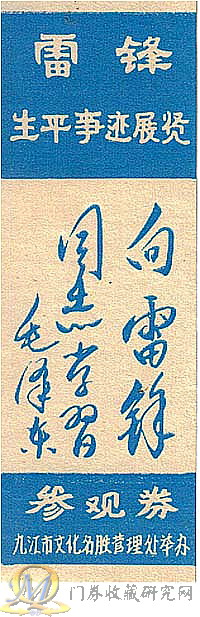 雷锋
生平事迹展览
向雷锋
同志学習
毛泽东
参观券
九江市文化名胜管理处举办
门券收藏研究网